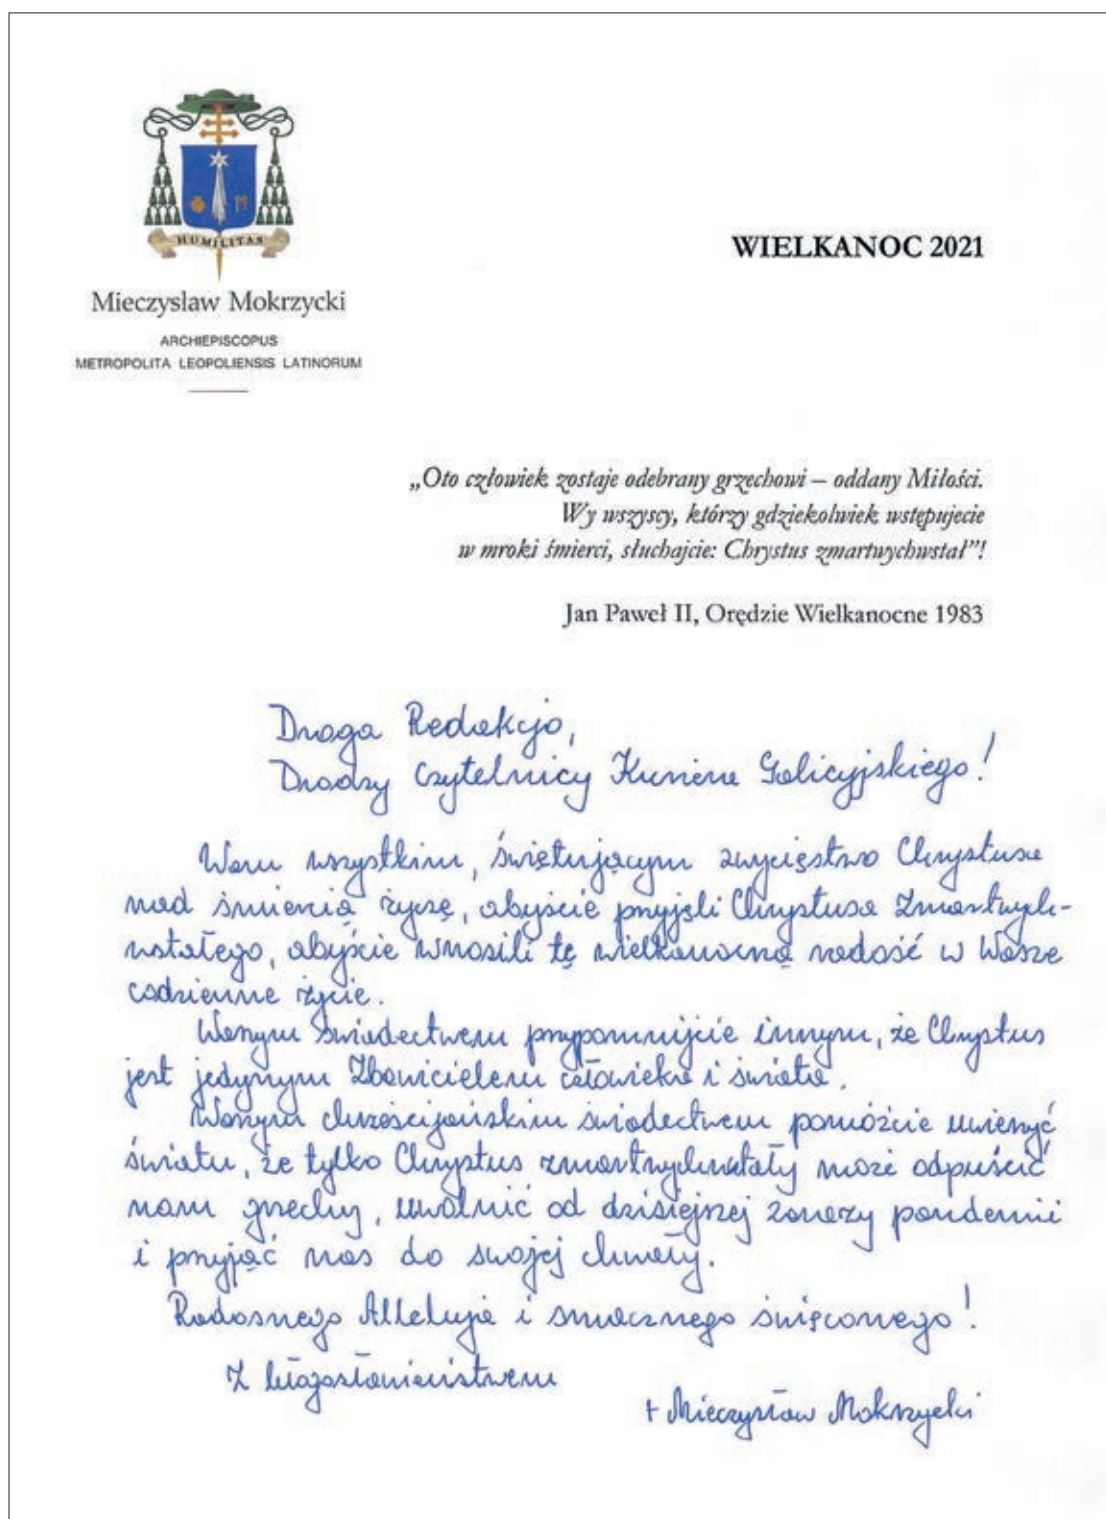 HUMILITAS
Mieczysław Mokrzycki
ARCHIEPISCOPUS
METROPOLITA LEOPOLIENSIS LATINORUM
WIELKANOC 2021
„Oto człowiek zostaje odebrany grzechowi – oddany Miłości.
Wy wszyscy, którzy gdziekolwiek wstępujecie
w mroki śmierci, słuchajcie: Chrystus zmartwychwstał”!
Jan Paweł II, Orędzie Wielkanocne 1983
Droga Redakcjo,
Drodzy Czytelnicy Kuriera Galicyjskiego!
Wam wszystkim, świętującym zwycięstwo Chrystusa
nad śmiercią życzę, abyście przyjęli Chrystusa Zmartwych-
wstałego, abyście wnosili tę wielkanocną radość w Wasze
codzienne życie.
Waszym świadectwem przypomnijcie innym, że Chrystus
jest jedynym Zbawicielem człowieka i świata.
Waszym chrześcijańskim świadectwem pomóżcie uwierzyć
światu, że tylko Chrystus zmartwychwstały może odpuścić
nam grzechy, uwolnić od dzisiejszej zarazy pandemii
i przyjąć nas do swojej chwały.
Radosnego Alleluja i smacznego święconego!
Z błogosławieństwem
+ Mieczysław Mokrzycki